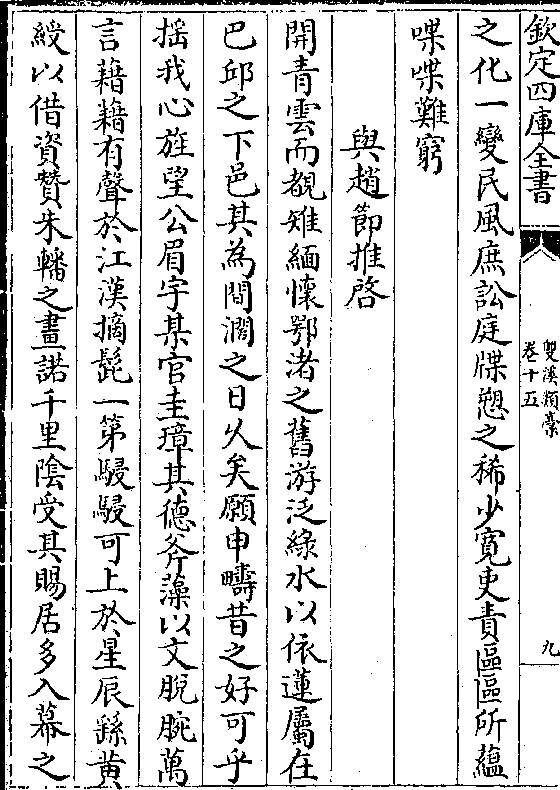 欽定四庫全書
雙溪類藁
卷十五
九
之化一變民風庶訟庭牒愬之稀少寛吏責區區所藴
喋喋難窮
與趙節推啓
開青雲而覩雉緬懷鄂渚之舊游泛緑水以依蓮屬在
巴邱之下邑其為間濶之日乆矣願申疇昔之好可乎
揺我心旌望公眉宇某官圭璋其徳斧藻以文脱腕萬
言藉藉有聲於江漢摘髭一第駸駸可上於星辰繇黄
綬以借資贊朱轓之畫諾千里陰受其賜居多入幕之